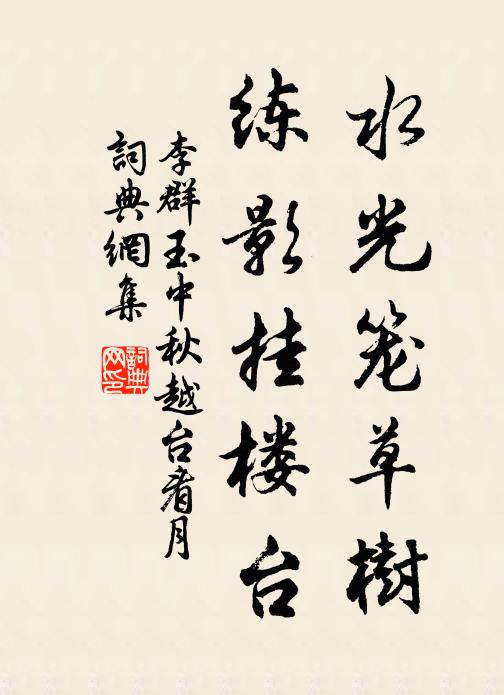 水光笼草樹
练影挂楼台
李群玉中秋越台看月
詞典網集
詞典网印